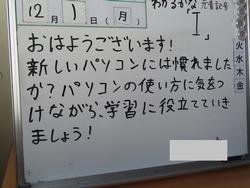 12月1日(月)
わかるかな
元素記号
「I」
火水木金
おはようございます!
新しいパソコンには慣れました
か?パソコンの使い方に気をつ
けながら、学習に役立てていき
ましょう!